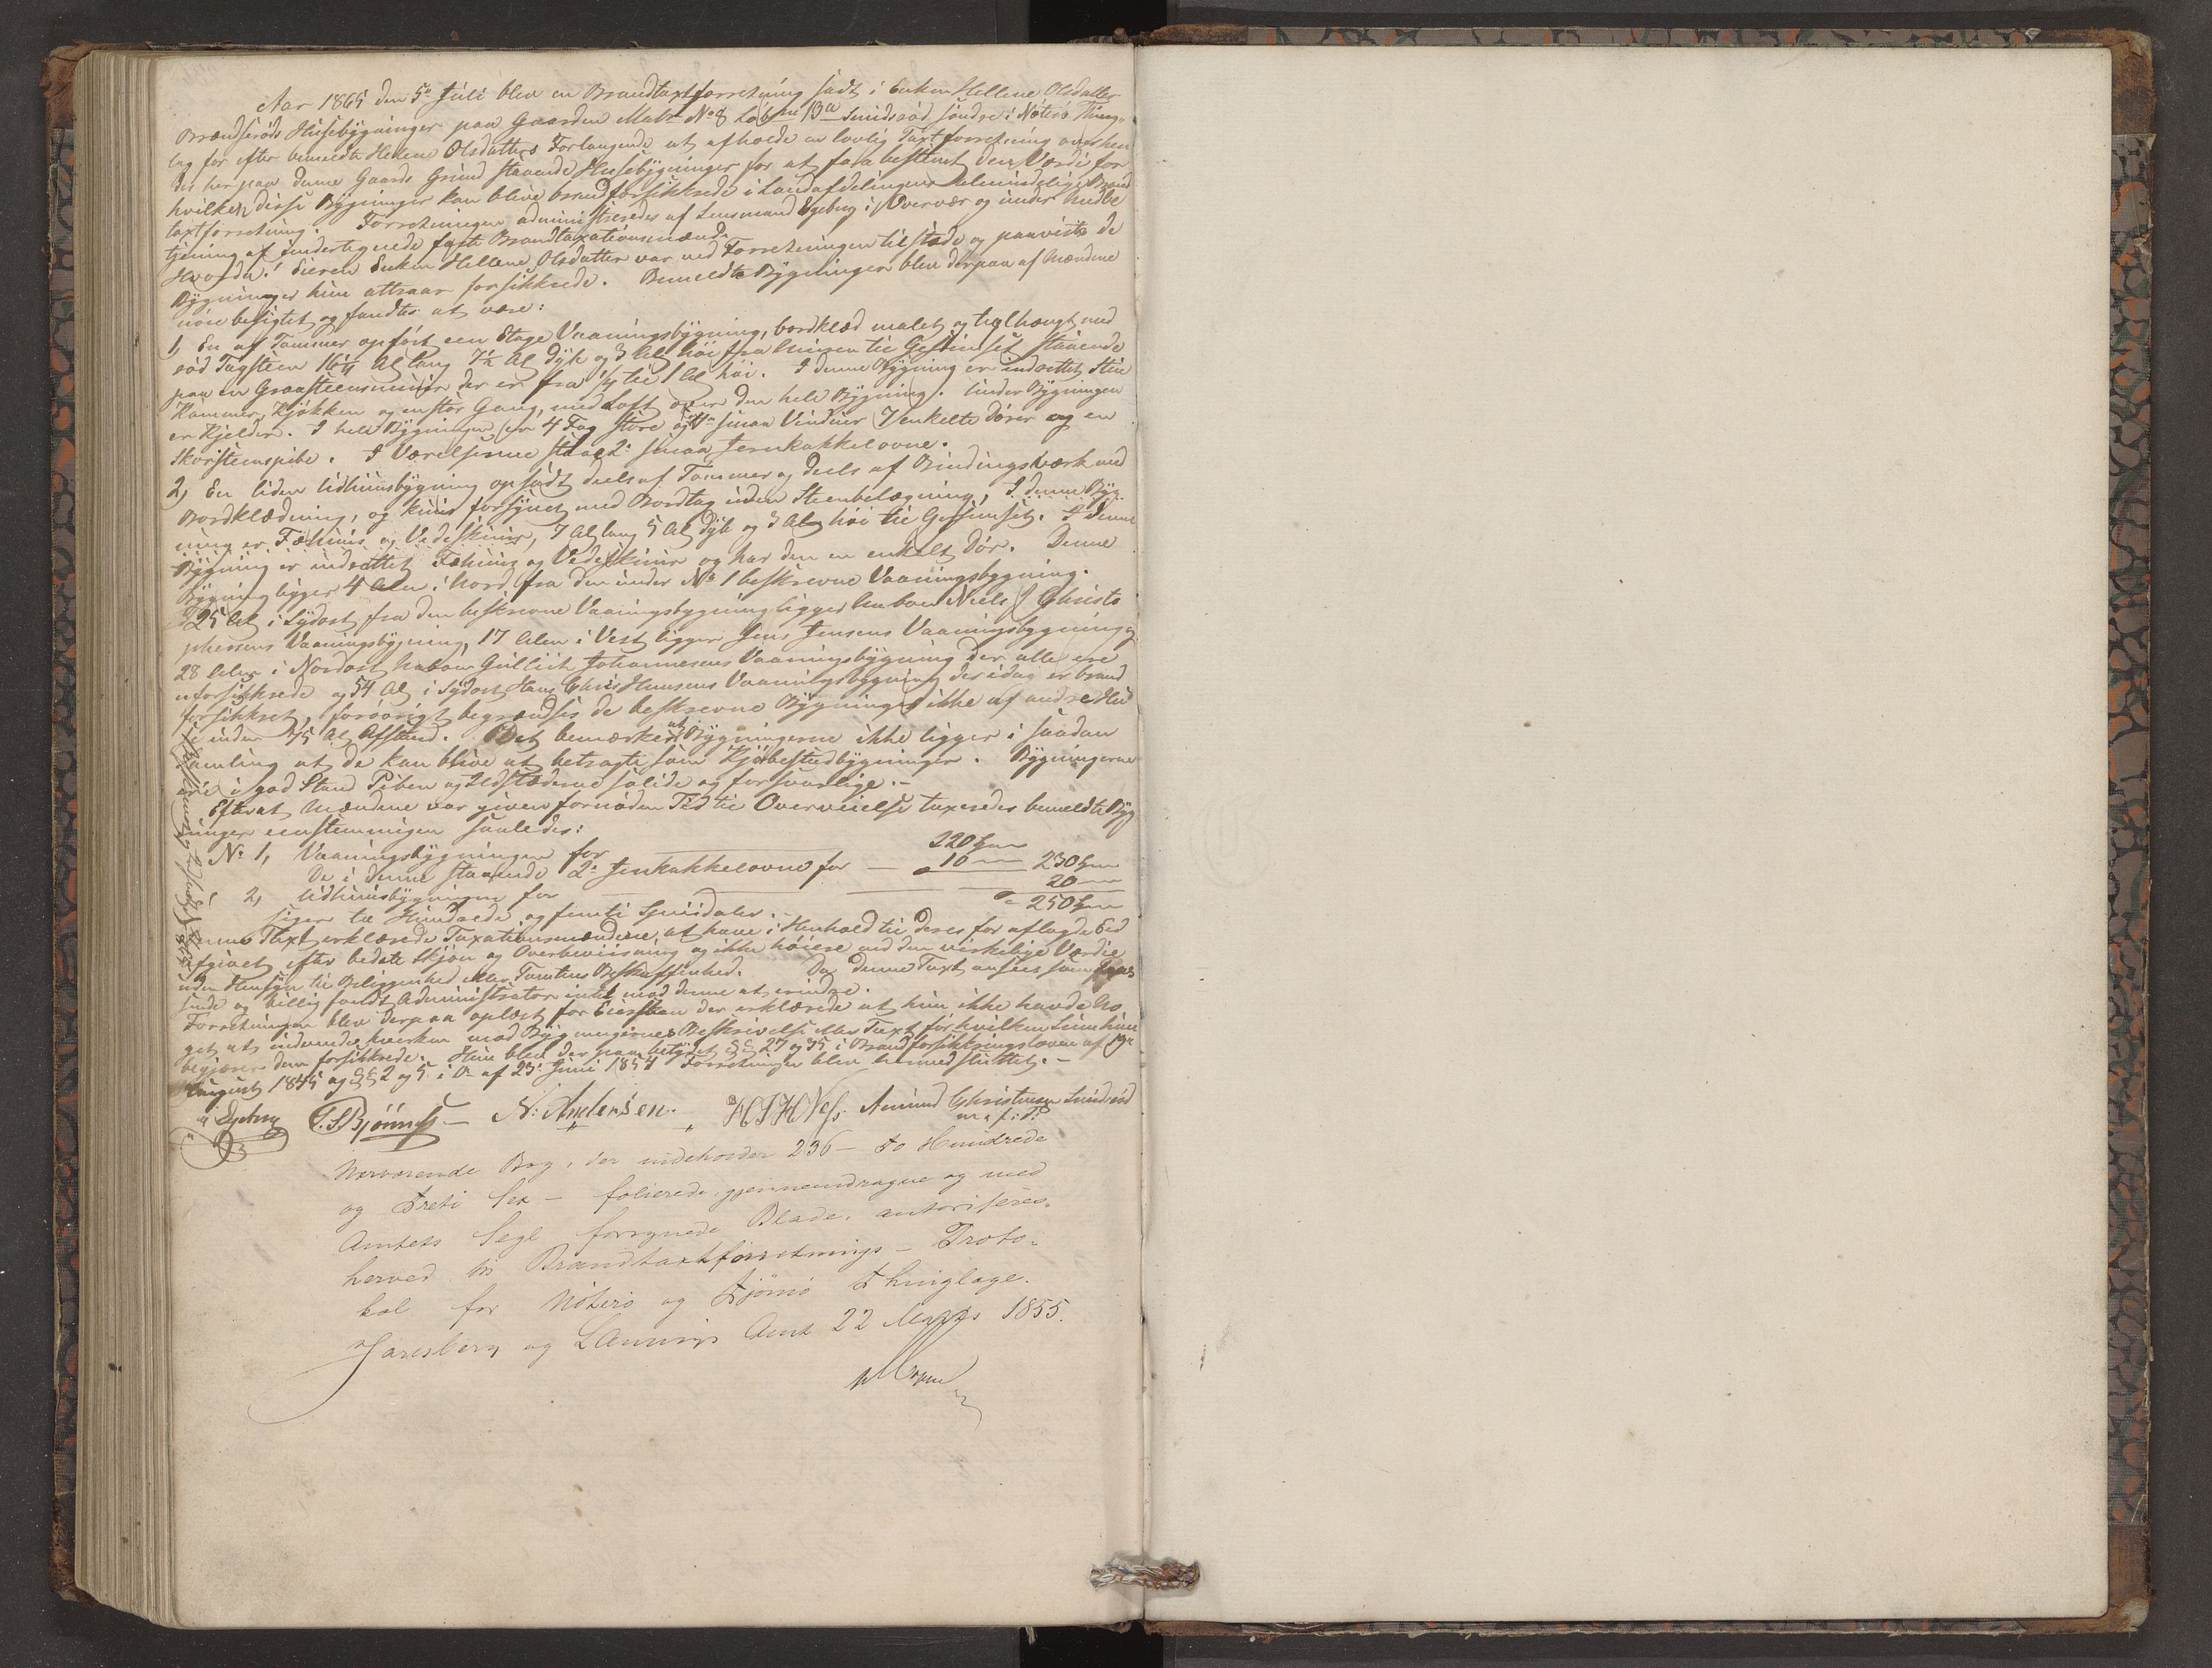 Aar 1865 den 5te Juli blev en Brandtaxtforretning sadt i Enken Hellene Olsdatter
Brændserøds Husebygninger paa Gaarden Matr No 8 Løbne 13a Smidsrød søndre i Nøterø Thing-
lag for efter bemeldte Hellene Olsdatters Forlangende at afholde en lovlig Taxtforretning over hen
des her paa denne Gaards Grund staaende Husebygninger for at faa bestemt den Værdi for
hvilken disse Bygninger kan blive brandforsikkrede i Landafdelingens Almindelige Brand
taxtforretning. Forretningen administreredes af Lensmand Egeberg i Overvær og under Medbe
tjening af undertegnede faste Brandtaxationsmænd.
Hvorda! Eieren Enken Hellene Olsdatter var ved Forretningen tilstæde og paaviste de
Bygninger hun attraar forsikkrede. Bemeldte Bygninger blev derpaa af Mændene
nøie besigtet og fandtes at være:
1, En af Tømmer opført een Etage Vaaningsbygning, bordklæd malet og tælhængt med
rød Tagsteen 16¼ Al lang 7½ Al dyb og 3 Al høi fra Muren til Gesimset staaende
paa en Graasteensmuur der er fra ½ til 1 Al høi. I denne Bygning er indrettet Stue
Kammer, Kjøkken og en stor Gang, med Loft over den hele Bygning. Under Bygningen
er Kjelder. I hele Bygningen er 4 Fag store og 4 smaa Vinduer 7 enkelte Dører og en
Skorsteenspibe. I Værelserne staae 2de smaa Jernkakkelovne.
2, En liden Udhuusbygning opsadt deels af Tømmer og deels af Bindingsværk med
Bordklædning, og kuns forsynet med Bordtag uden Steenbelægning, I denne Byg-
ning er Fæhuus og Vedeskuur, 7 Al lang 5 Al dyb og 3 Alen høi til Gesimset. I denne
Bygning er indrettet Fæhuus og Vedeskuur og har den en enkelt Dør. Denne
Bygning ligger 4 Alen i Nord fra den under No 1 beskrevne Vaaningsbygning.
25 Al i Sydost fra den beskrevne Vaaningsbygning ligger Naboen Niels J Christo
phersens Vaaningsbygning, 17 Alen i Vest ligger Jens Jensens Vaaningsbygning og
28 Alen i Nordost Naboen Gulliik Johannesens Vaaningsbygning der alle ere
uforsikkrede og 54 Al i Sydost Hans Chris Hansens Vaaningsbygning der idag er brand
forsikkret, forøvrigt begrændses de beskrevne Bygninger ikke af andre Hu
se inden 75 Al Afstand. Det bemærkes at Bygningerne ikke ligger i saadan
Samling at de kan blive at betragte som Kjøbestedbygninger. Bygningerne
ere i god Stand Piben og Ildstæderne solide og forsvarlige.-
Efterat Mændene var given fornøden Tid til Overveielse taxeredes bemeldte Byg
ninger eenstemmigen saaledes:
No 1, Vaaningsbygningen for 220
De i denne staaende 2de Jernkakkelovne for 10 230
2, Udhuusbygningen for 20
250
siger to Hundrede og femti Speisdaler.
Denne Taxt erklærede Taxationsmændene, at have i Henhold til deres før aflagde Eed
afgivet efter bedste Skjøn og Overbeviisning og ikke høiere end den virkelige Værdie
uden Hensyn til Beliggenhed eller Tomtens Beskaffenhed. Da denne Taxt ansees som pas
sende og billig fandt Administrator intet mod denne at erindre.
Forretningen blev derpaa oplæst for Eiersken der erklærede at hun ikke havde No
get at indvende hverken mod Bygningernes Beskrivelse eller Taxt for hvilken Sum hun
begjærer dem forsikkrede. Hun blev derpaa betydet §§ 27 og 35 i Brandforsikkringsloven af 19de
August 1845 og §§ 2 og 5 i Do af 23de Juni 1854 Forretningen blev hermed sluttet.-
Egeberg T. S. Bjønnes - N. Andersen. H J H Næss. Amund Christensen Smidsrød
m. f. P.
Nærværende Bog, der indeholder 236 - to Hundrede
og Treti Sex - folierede, gjennemdragne og med
Amtets Segl forsynede Blade, autoriseres
herved til Brandtaxtforretnings - Proto-
kol for Nøterø og Tjømø Thinglage.
Jarlsberg og Laurvigs Amt 22 Marts 1855.